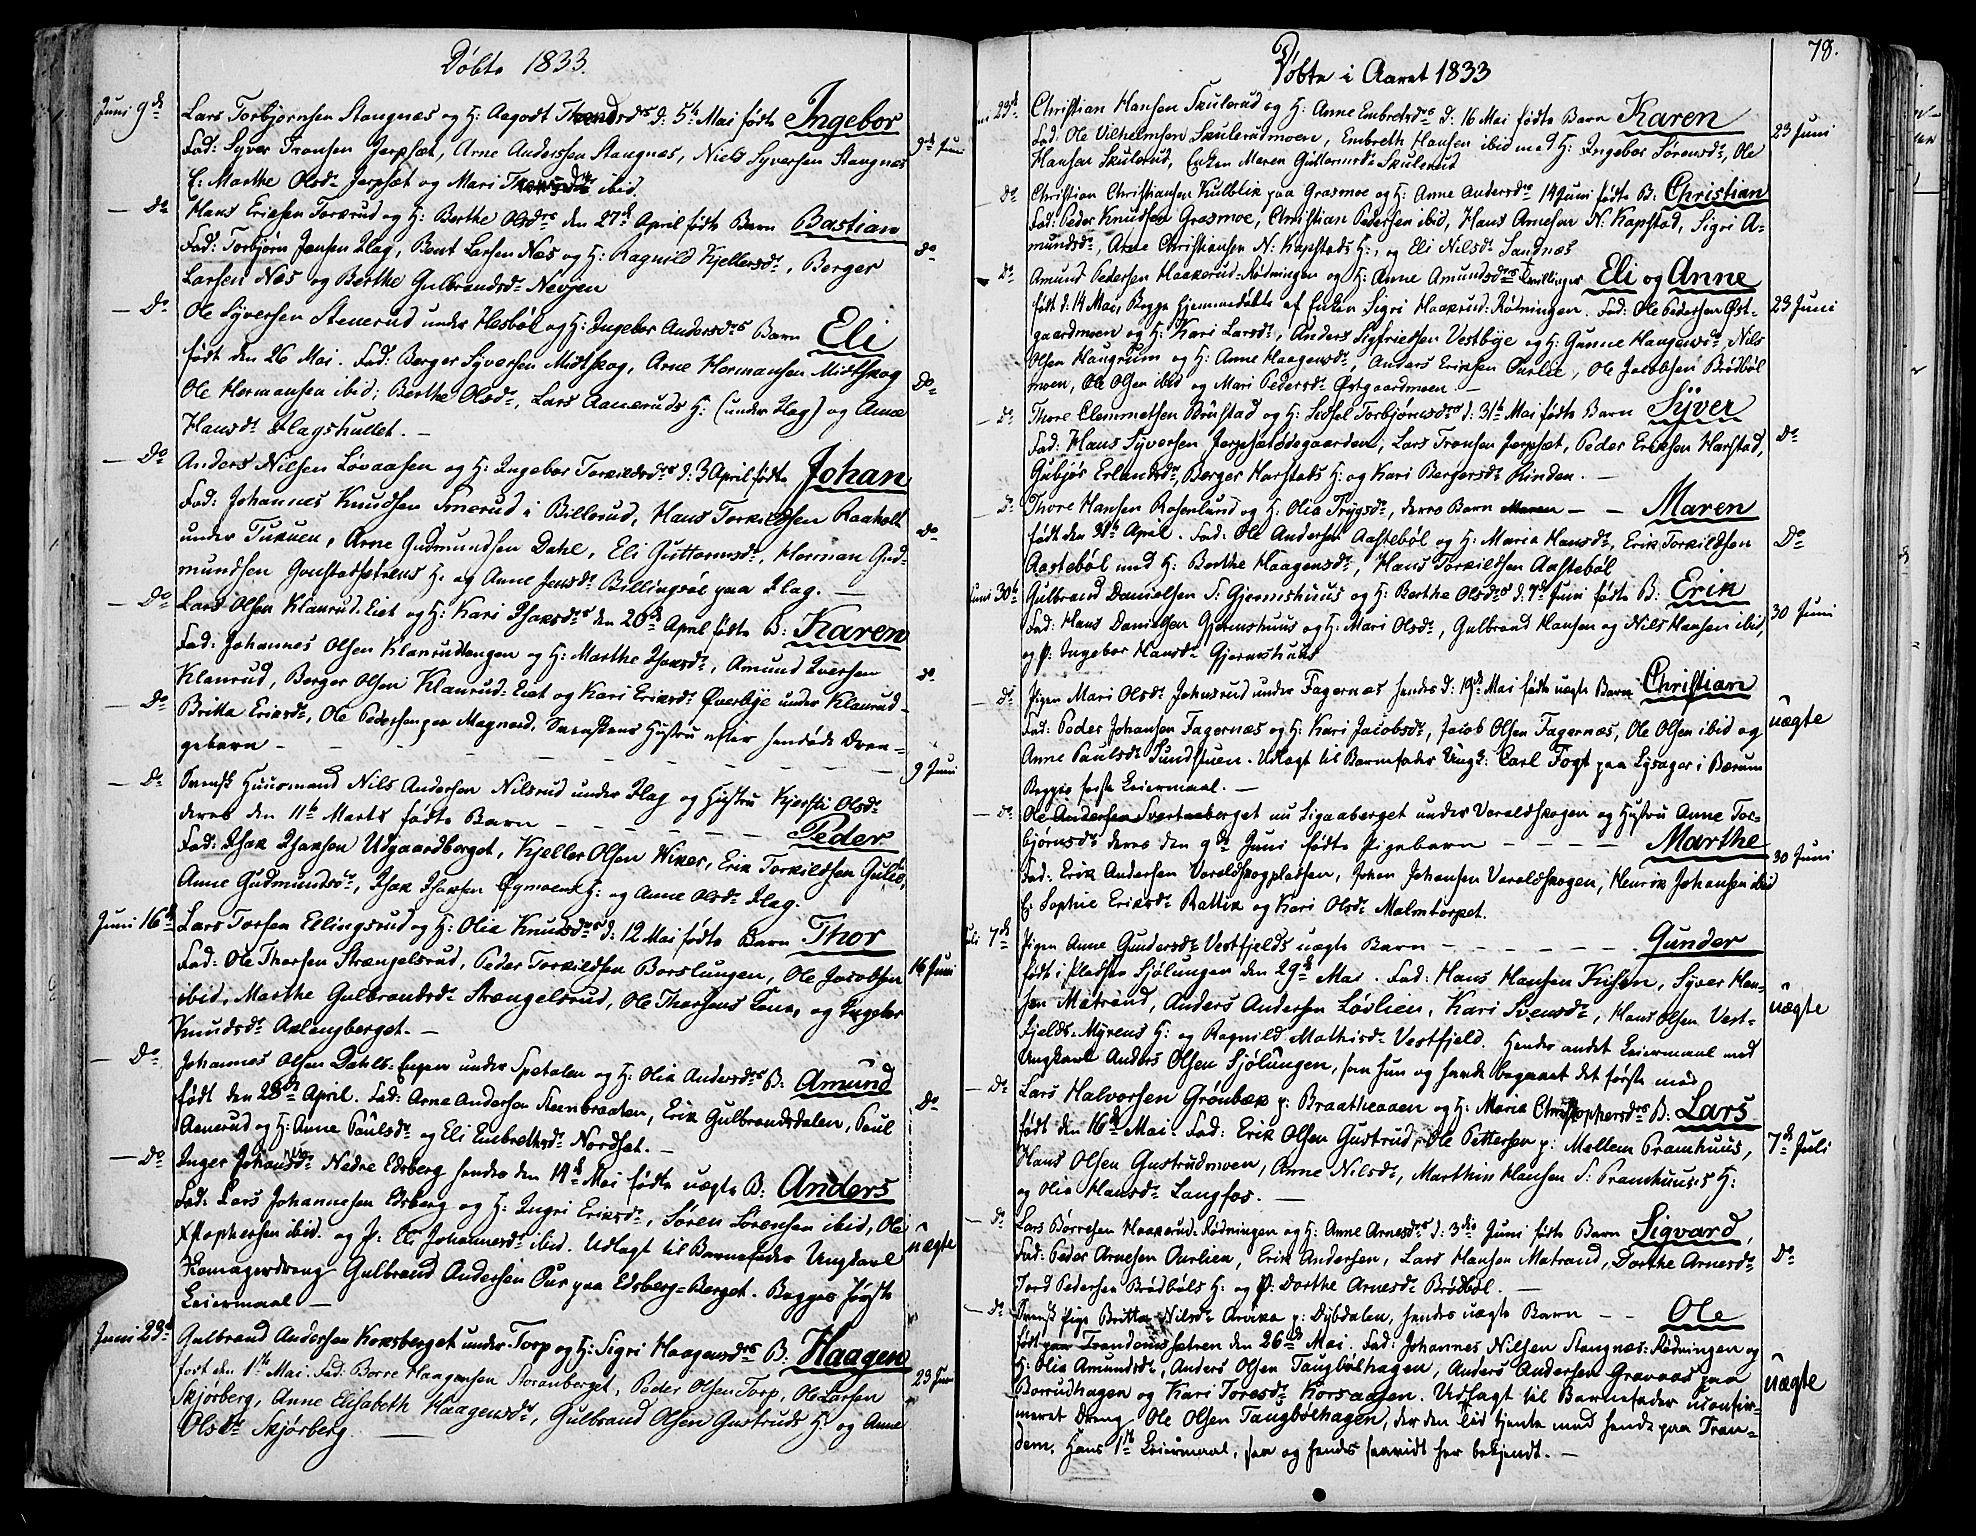 Döbte 1833.
Juni 9de Lars Torbjörnsen Stangnæs og H: Aagodt Thordsdr d: 5te Mai födte Ingebor
Fad: Syver Tronsen Jerpsæt, Arne Andersen Stangnæs, Niels Syversen Stangnæs 9de Juni
E: Marthe Olsdr Jerpsæt og Mari ibid.
— Do Hans Ericsen Torkrud og H: Berthe Olsdrs den 27de April födte Barn Bastian
Fad: Torbjörn Jensen Flag, Bent Larsen Næs og H: Ragnild Kjellersdr, Berger Do
Larsen Næs og Berthe Gulbrandsdr Nevjen
— Do Ole Syversen Stenerud under Hesböl og H: Ingebor Andersdrs Barn Eli
födt den 26 Mai. Fad: Berger Syversen Midtskog, Arne Hermansen Midtskog
Ole Hermansen ibid; Berthe Olsdr, Lars Aaneruds H: (under Flag) og Anne Do
Hansdr Flagshullet. —
— Do Anders Nilsen Lövaasen og H: Ingebor Torkildsdrs d: 3 April födte Johan
Fad: Johannes Knudsen Smerud i Billerud, Hans Torkildsen Raaholt
under Tukuen, Arne Gudmundsen Dahl, Eli Guttormsdr, Herman Gud- Do
mundsen Gonstadsetrens H. og Anne Jensdr Billingsöe paa Flag. —
— Do Lars Olsen Klanrud-Eiet og H: Kari Isaksdrs den 20de April födte B: Karen
Fad: Johannes Olsen Klanrudengen og H: Marthe Isaksdr, Amund Iversen
Klanrud, Berger Olsen Klanrud-Eiet og Kari Eriksdr Överbye under Klanrud — Do
— Do Britta Eriksdr, Ole Pedersen paa Magnord, Svenskens Hystru efter hendöde Dren-
gebarn — — — — — — 9 Juni
— Do Svensk Huusmand Nils Andersen Nilsrud under Flag og Hystru Kjersti Olsdr
deres den 11te Marts födte Barn — — — — Peder
Fad: Isak Isaksen Udgaardberget, Kjeller Olsen Viker, Erik Torkildsen Gulli,
Anne Gudmundsdr, Isak Isaksen Ögmoens H: og Anne Olsdr Flag.
Juni 16de Lars Torsen Ellingsrud og H: Olia Knudsdrs d: 12 Mai födte Barn Thor
Fad: Ole Thorsen Strængelsrud, Peder Torkildsen Borslungen, Ole Jacobsen 16 Juni
ibid, Marthe Gulbrandsdr Strængelsrud, Ole Thorsens Kone, og Ingebor
Knudsdr Aslangberget. —
— Do Johannes Olsen Dahls-Engen under Spetalen og H: Olia Andersdrs B: Amund
födt den 28de April. Fad: Arne Andersen Steenbraaten, Erik Gulbrandsdalen, Paul Do
Aanerud og H: Anne Paulsdr og Eli Embrethsdr Nordset. —
— Do Inger Johansdr Nedre Edsberg hendes den 14de Mai födte uægte B: Anders
Fad: Lars Johannesen Edsberg og H: Ingri Eriksdr, Sören Sörensen ibid, Ole
Xstophersen ibid. og P: Eli Johannesdr ibid. Udlagt til Barnefader Ungkarl uægte
Skomagerdreng Gulbrand Andersen Our paa Edsberg-Berget. Begges förste
Leiermaal —
Juni 23de Gulbrand Andersen Korsberget under Torp og H: Sigri Haagensdrs B: Haagen
födt den 1ste Mai. Fad: Borre Haagensen Storenberget, Peder Olsen Torp, Ole Larsen 23 Juni
Skjörberg, Anne Elisabeth Haagensdr, Gulbrand Olsen Gustruds H: og Anne
Olsdr Skjörberg. —
Döbte i Aaret 1833 78.
Juni 23de Christian Hansen Skulerud og H: Anne Embretsdrs d. 16 Mai födte Barn Karen
Fad: Ole Vilhelmsen Skulerudmoen, Embreth Hansen ibid med H: Ingebor Sörensdr, Ole 23 Juni
Hansen Skulerud, Enken Maren Guttormsdr Skulerud
— Do Christian Christiansen Kulblik paa Grasmoe og H: Anne Andersdrs 14 Juni födte B: Christian
Fad: Peder Knudsen Grasmoe, Christian Pedersen ibid, Hans Arnesen N. Kapstad, Sigri A-
mundsdr, Arne Christiansen N: Kapstads H:, og Eli Nilsdr Sandnæs
— Do Amund Pedersen Haakerud-Rödningen og H: Anne Amundsdrs Tvillinger Eli og Anne
födt d. 14 Mai, Begge hjemmedöbte af Enken Sigri Haakrud-Rödningen. Fad: Ole Pedersen Öst- 23 Juni
gaardmoen og H: Kari Larsdr, Anders Sigfriedsen Vestbye og H: Gunne Haagensdr, Nils
Olsen Haugrum og H: Anne Haagensdr, Anders Eriksen Ourlie, Ole Jacobsen Brödböl
moen, Ole Olsen ibid og Mari Pedersdr Östgaardmoen —
— Do Thore Clemmetsen Brustad og H: Sidsel Torbjörnsdrs d: 31te Mai födte Barn Syver
Fad: Hans Syversen Jerpsætödegaarden, Lars Tronsen Jerpsæt, Peder Eriksen Harstad, Do
Gubjör Erlandsdr, Berger Harstads H: og Kari Bergersdr Linden. —
— Do Thore Hansen Rosenlund og H: Olia Trygsdr, deres Barn Maren — — Maren
födt den 31te April. Fad: Ole Andersen Aasteböl og H: Maria Hansdr, Erik Torkildsen Do
Aasteböl med H: Berthe Haagensdr, Hans Torkildsen Aasteböl
Juni 30te Gulbrand Danielsen S: Gjermshuus og H: Berthe Olsdrs d: 7de Juni födte B: Erik
Fad: Hans Danielsen Gjermshuus og H: Mari Olsdr, Gulbrand Hansen og Nils Hansen ibid, 30 Juni
og P: Ingebor Hansdr Gjermshuus
— Do Pigen Mari Olsdr Johnsrud under Fagernæs hendes d: 19de Mai födte uægte Barn Christian
Fad: Peder Johansen Fagernæs og H: Kari Jacobsdr, Jacob Olsen Fagernæs, Ole Olsen ibid og uægte
Anne Paulsdr Sundstuen. Udlagt til Barnefader Ungk: Carl Fogt paa Lysager i Bærum
Begges förste Leiermaal. —
— Do Ole Andersen Svartneberget nu Ligaaberget under Varaldskogen og Hystru Anne Tor-
björnsdr deres den 9de Juni födte Pigebarn — — — Marthe
Fad: Erik Andersen Varaldskogpladsen, Johan Johansen Varaldskogen, Henrik Johansen ibid 30 Juni
E: Sophie Eriksdr Rattik og Kari Olsdr Malmtorpet.
Juli 7de Pigen Anne Gundersdr Vestfjelds uægte Barn — — — Gunder
födt i Pladsen Sjölungen den 29de Mai. Fad: Hans Hansen Kusen, Syver Han-
sen Matrand, Anders Andersen Lövlien, Kari Svensdr, Hans Olsen Vest- uægte
fjelds-Myrens H: og Ragnild Mathisdr Vestfjeld. Hendes andet Leiermaal med
Ungkarl Anders Olsen Sjölungen, som hun og havde begaaet det förste med
— Do Lars Halvorsen Grönbæk p: Braatheaaen og H: Maria Christophersdrs B: Lars
födt den 16de Mai. Fad: Erik Olsen Gustrud, Ole Pettersen p: Mellem Pramhuus, 7de Juli
Hans Olsen Gustrudmoen, Anne Nilsdr, Marthin Hansen S: Pramhuus's H:
og Olia Hansdr Langfos. —
— Do Lars Börresen Haakerud-Rödningen og H: Anne Arnesdrs d: 3die Juni födte Barn Sigvard,
Fad: Peder Arnesen Ourlien, Erik Andersen, Lars Hansen Matrand, Dorthe Arnesdr Do
Tord Pedersen Brödböls H: og P: Dorthe Arnesdr Brödböl. —
— Do Svensk Pige Britta Nilsdr Arvika p: Dybdalen, hendes uægte Barn — — Ole
födt paa Trandemsætren den 26de Mai. Fad: Johannes Nilsen Stangnæs-Rödningen og
H: Olia Amundsdr, Anders Olsen Tangbölhagen, Anders Andersen Gravaas paa uægte
Borrudhagen og Kari Toresdr Korsaasen. Udlagt til Barnefader uconfir-
meret Dreng Ole Olsen Tangbölhagen, der den Tid tjente med hende paa Tran-
dem. Hans 1ste Leiermaal, saa og hendes saavidt her bekjendt. —